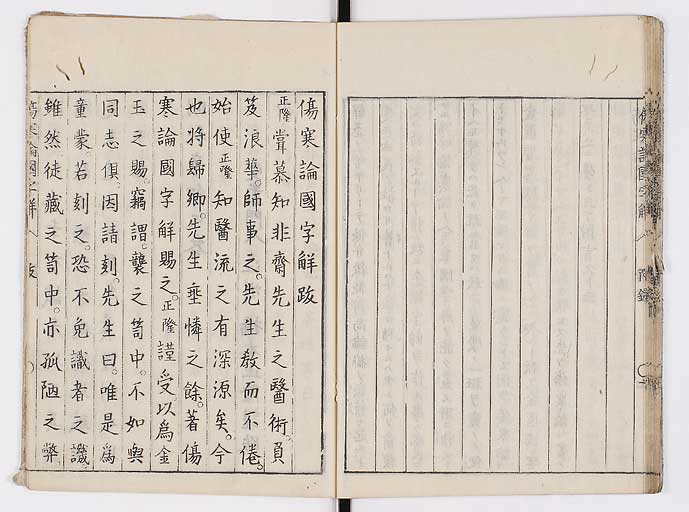 傷寒論國字解
附錄
傷寒論國字解跋
正隆嘗慕知非齋先生之醫術負
笈浪華。師事之。先生教而不倦。
始使正隆知醫流之有深源矣。今
也將歸鄉。先生垂憐之餘。著傷
寒論國字解賜之。正隆謹受。以爲金
玉之賜。竊謂。襲之笥中。不如與
同志俱。因請刻。先生曰。唯是爲
童蒙。若刻之。恐不免識者之譏。
雖然徒藏之笥中。亦孤陋之弊
傷寒論國字解 跋